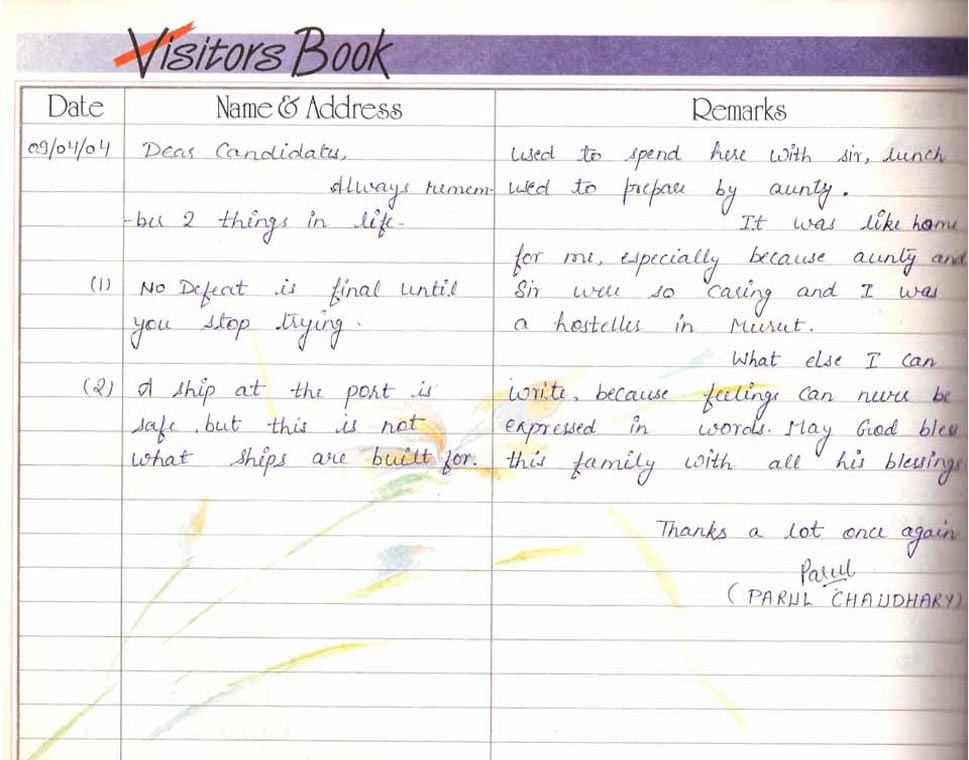 Visitors Book
Date
Name & Address
Remarks
09/04/04
Dear Candidates,
Always remem-
-ber 2 things in life.
(1) No Defeat is final until
you stop trying.
(2) A ship at the port is
safe, but this is not
what ships are built for.
used to spend here with sir, lunch
used to prepare by aunty.
It was like home
for me, especially because aunty and
Sir were so caring and I was
a hosteller in Meerut.
What else I can
write, because feelings can never be
expressed in words. May God bless
this family with all his blessings
Thanks a lot once again
Parul
(PARUL CHAUDHARY)